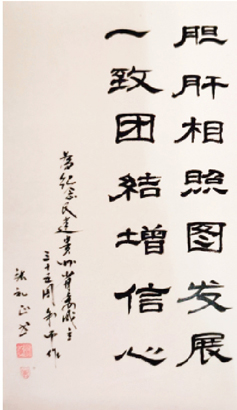 胆肝相照图发展
一致团结增信心
为纪念民建贵州省委成立
三十五周年而作